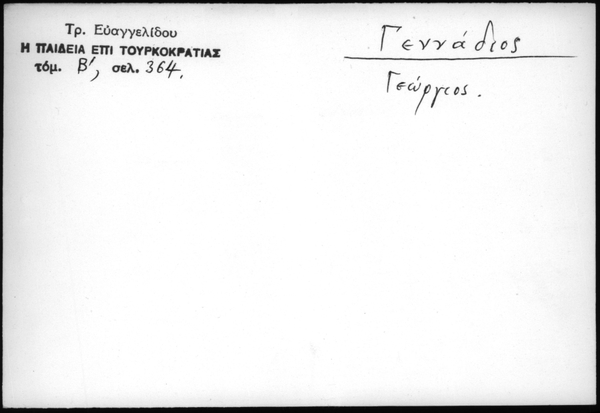 Τρ. Εὐαγγελίδου
Η ΠΑΙΔΕΙΑ ΕΠΙ ΤΟΥΡΚΟΚΡΑΤΙΑΣ
τόμ. Β', σελ. 364.
Γεννάδιος
Γεώργιος.